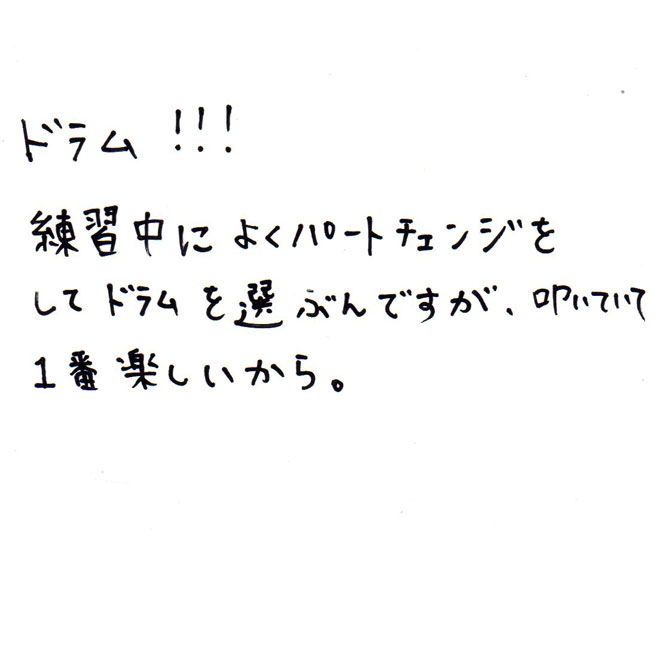 ドラム !!!
練習中によくパートチェンジを
してドラムを選ぶんですが、叩いていて
1番楽しいから。